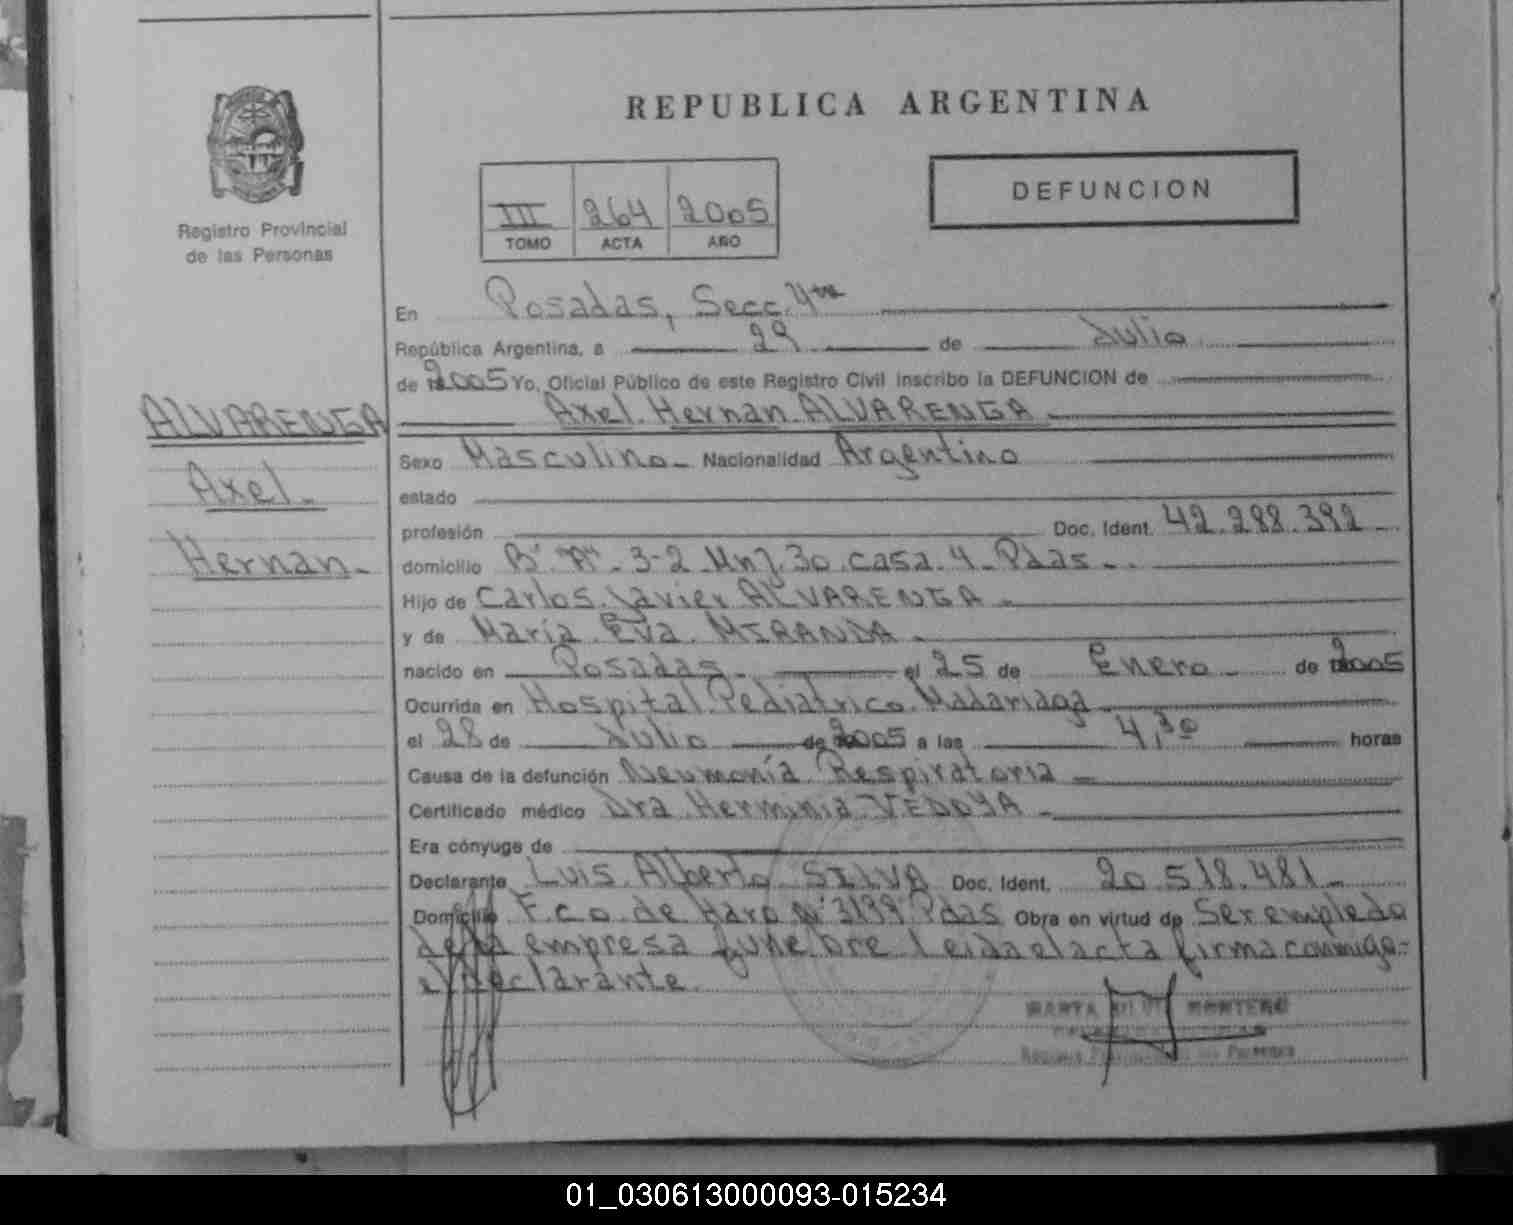 REPUBLICA ARGENTINA
DEFUNCION
Registro Provincial
de las Personas
III 264 2005
TOMO ACTA AÑO
En Posadas, Secc. 4ta
República Argentina, a 29 de Julio
de 2005 Yo, Oficial Público de este Registro Civil inscribo la DEFUNCION de
ALVARENGA
Axel
Hernan
Axel Hernan ALVARENGA
Sexo Masculino Nacionalidad Argentino
estado
profesión Doc. Ident. 42.288.392
domicilio B° "A" 3-2 Mnz 30 casa 4 Pdas
Hijo de Carlos Javier ALVARENGA
y de María Eva MIRANDA
nacido en Posadas el 25 de Enero de 2005
Ocurrida en Hospital Pediatrico Madariaga
el 28 de Julio de 2005 a las 4,30 horas
Causa de la defunción Neumonía Respiratoria
Certificado médico Dra Herminia VEDOYA
Era cónyuge de
Declarante Luis Alberto SILVA Doc. Ident. 20.518.481
Domicilio Fco de Haro N° 3199 Pdas Obra en virtud de Ser empledo
de la empresa funebre Leida el acta firma conmigo
el declarante.
MARTA MONTERO
01_030613000093-015234